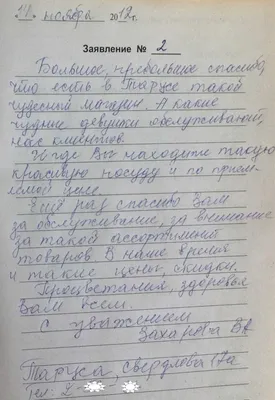 24 ноября 2012г.
Заявление № 2
Большое, пребольшое спасибо,
что есть в Тарусе такой
чудесный магазин. А какие
чудные девушки обслуживают,
нас клиентов.
И где Вы находите такую
красивую посуду и по прием-
лемой цене.
Ещё раз спасибо Вам
за обслуживание, за внимание
за такой ассортимент
товаров. В наше время
и такие цены, скидки.
Процветания, здоровья
Вам всем.
С уважением
Захарова В.
Таруса, Свердлова 12а
тел: 2-